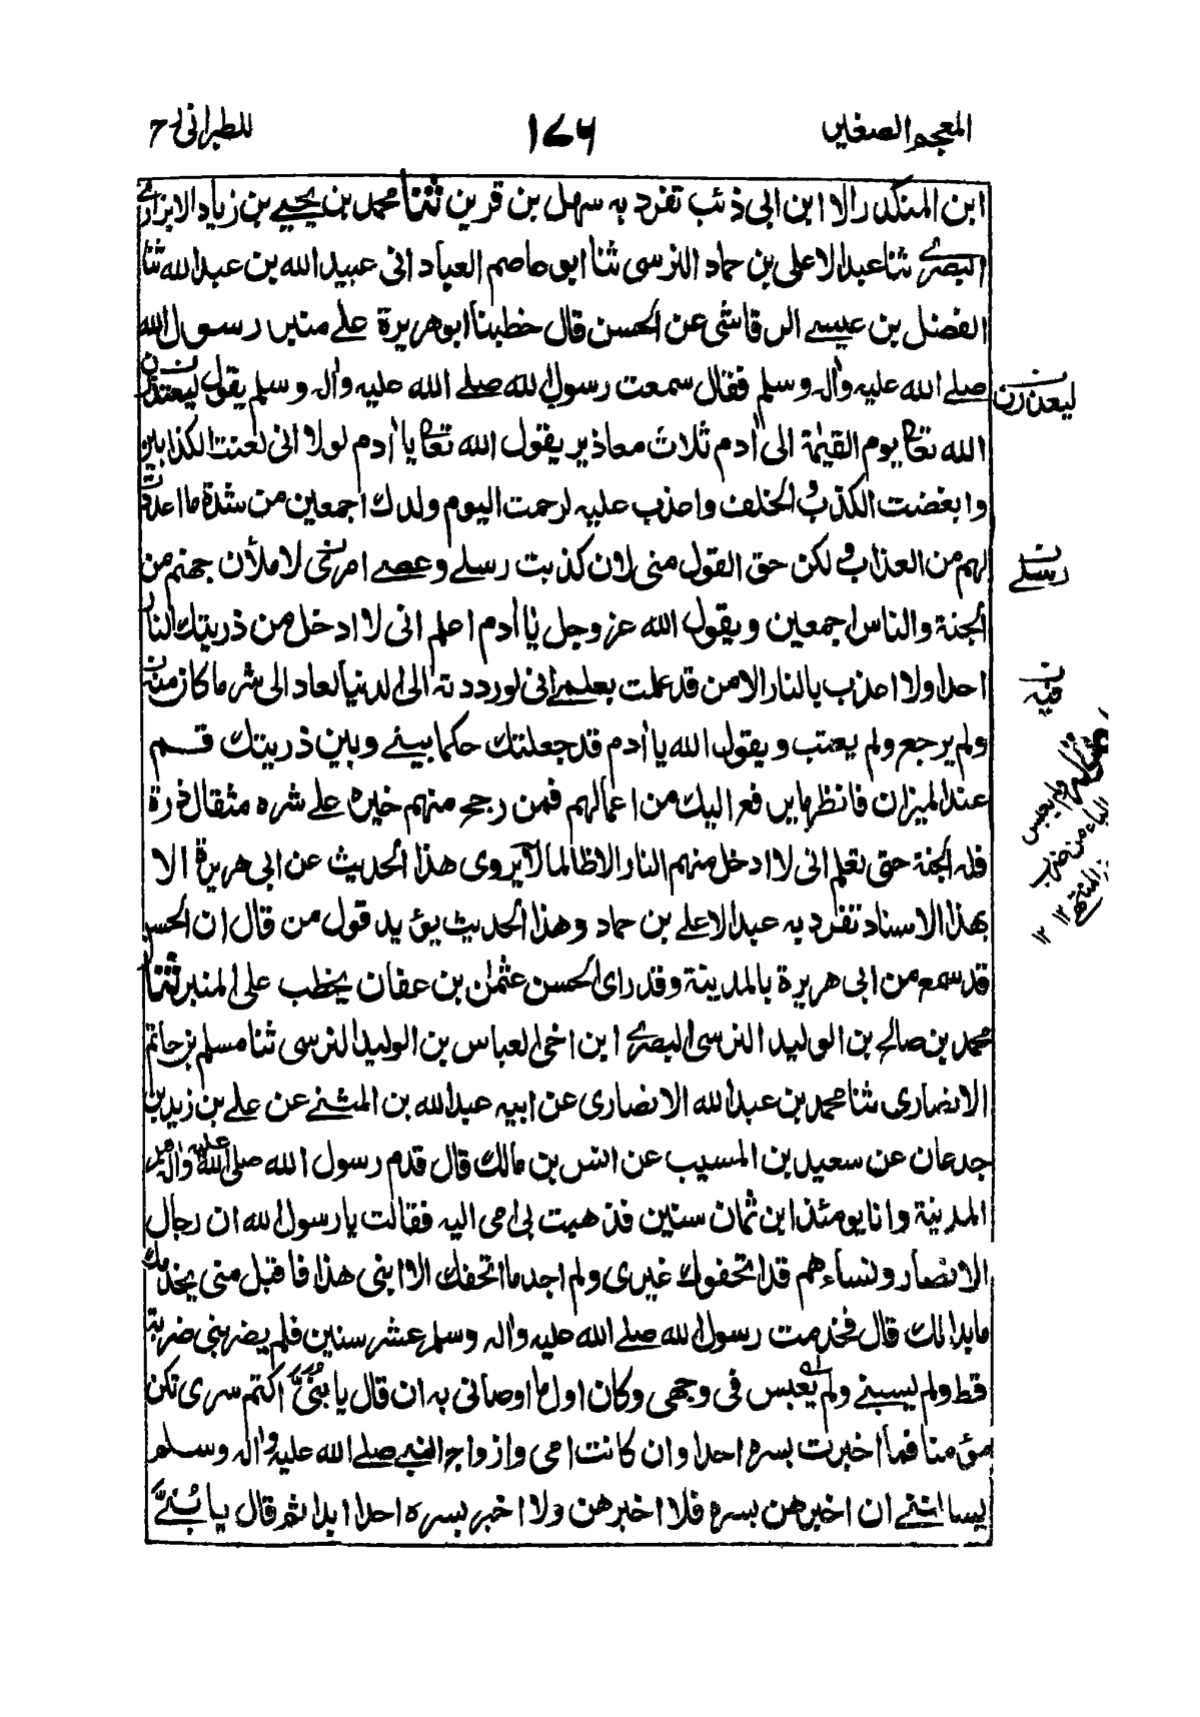 المعجم الصغير
١٧٦
للطبرانی ح
ابن المنكدر الا ابن ابی ذئب تفرد به سهل بن قرین ثنا محمد بن یحیے بن زیاد الابزاری
البصرے ثنا عبد الاعلی بن حماد النرسی ثنا ابو عاصم العبادانی عبید الله بن عبد الله ثنا
الفضل بن عیسے الرقاشی عن الحسن قال خطبنا ابو هریرة علے منبر رسول الله
صلے الله علیه واٰله وسلم فقال سمعت رسول الله صلے الله علیه واٰله وسلم یقول لیعتذرن
الله تعالٰی یوم القیٰمة الی اٰدم ثلاث معاذیر یقول الله تعالٰی یا اٰدم لولا انی لعنت الکذابین
وابغضت الکذب والخلف واعذب علیه لرحمت الیوم ولدك اجمعین من شدة ما اعددت
لهم من العذاب ولکن حق القول منی لان کذبت رسلے وعصے امری لاملأن جهنم من
الجنة والناس اجمعین ویقول الله عز وجل یا اٰدم اعلم انی لا ادخل من ذریتك النار
احدا ولا اعذب بالنار الا من قد علمت بعلمے انی لو رددته الی الدنیا لعاد الی شر ما کان منه
ولم یرجع ولم یعتب ویقول الله یا اٰدم قد جعلتك حکما بینے وبین ذریتك قم
عند المیزان فانظر ما یرفع الیك من اعمالهم فمن رجح منهم خیره علے شره مثقال ذرة
فله الجنة حتی تعلم انی لا ادخل منهم النار الا ظالما لا یروی هذا الحدیث عن ابی هریرة الا
بهذا الاسناد تفرد به عبد الاعلے بن حماد وهذا الحدیث یؤید قول من قال ان الحسن
قد سمع من ابی هریرة بالمدینة وقد رای الحسن عثمٰن بن عفان یخطب علی المنبر ثنا
محمد بن صالح بن الولید النرسی البصرے ابن اخی العباس بن الولید النرسی ثنا مسلم بن حاتم
الانصاری ثنا محمد بن عبد الله الانصاری عن ابیه عبد الله بن المثنے عن علے بن زید بن
جدعان عن سعید بن المسیب عن انس بن مالك قال قدم رسول الله صلی الله علیه واٰله
المدینة وانا یومئذ ابن ثمان سنین فذهبت بی امی الیه فقالت یا رسول الله ان رجال
الانصار ونساءهم قد اتحفوك غیری ولم اجد ما اتحفك الا ابنی هذا فاقبل منی یخدمك
ما بدا لك قال فخدمت رسول الله صلے الله علیه واٰله وسلم عشر سنین فلم یضربنی ضربة
قط ولم یسبنے ولم یعبس فی وجهی وکان اول ما اوصانی به ان قال یا بُنَیَّ اکتم سری تکن
مؤمنا فما اخبرت بسره احدا وان کانت امی وازواج النبے صلے الله علیه واٰله وسلم
یسالننے ان اخبرهن بسره فلا اخبرهن ولا اخبر بسره احدا ابدا ثم قال یا بُنَےَّ
لیعذرن
رسلے
فیه
ولم یعبس
من ضرب
١٢